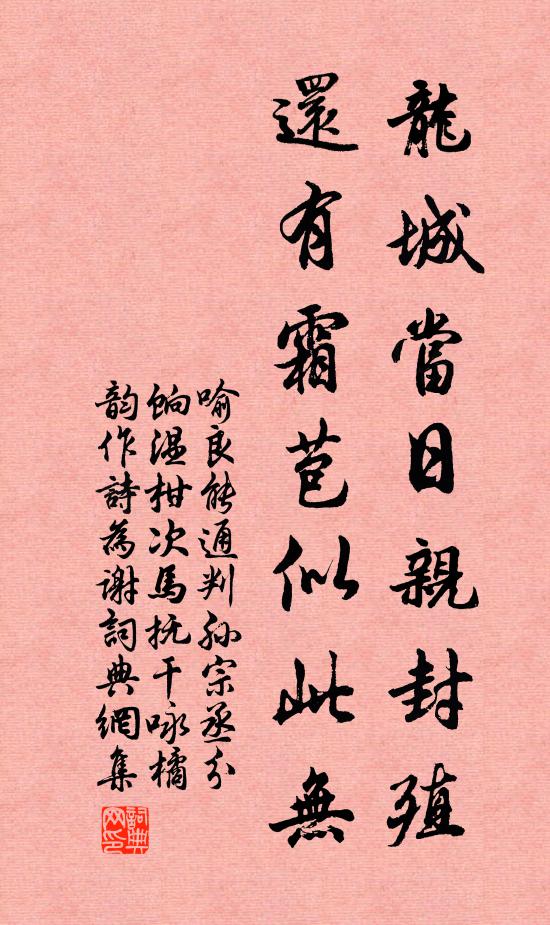 龍城當日親封殖
還有霜苞似此無
喻良能通判孫宗丞分
餉溫柑次馬抚干咏橘
韵作詩為謝詞典網集
詞典网印